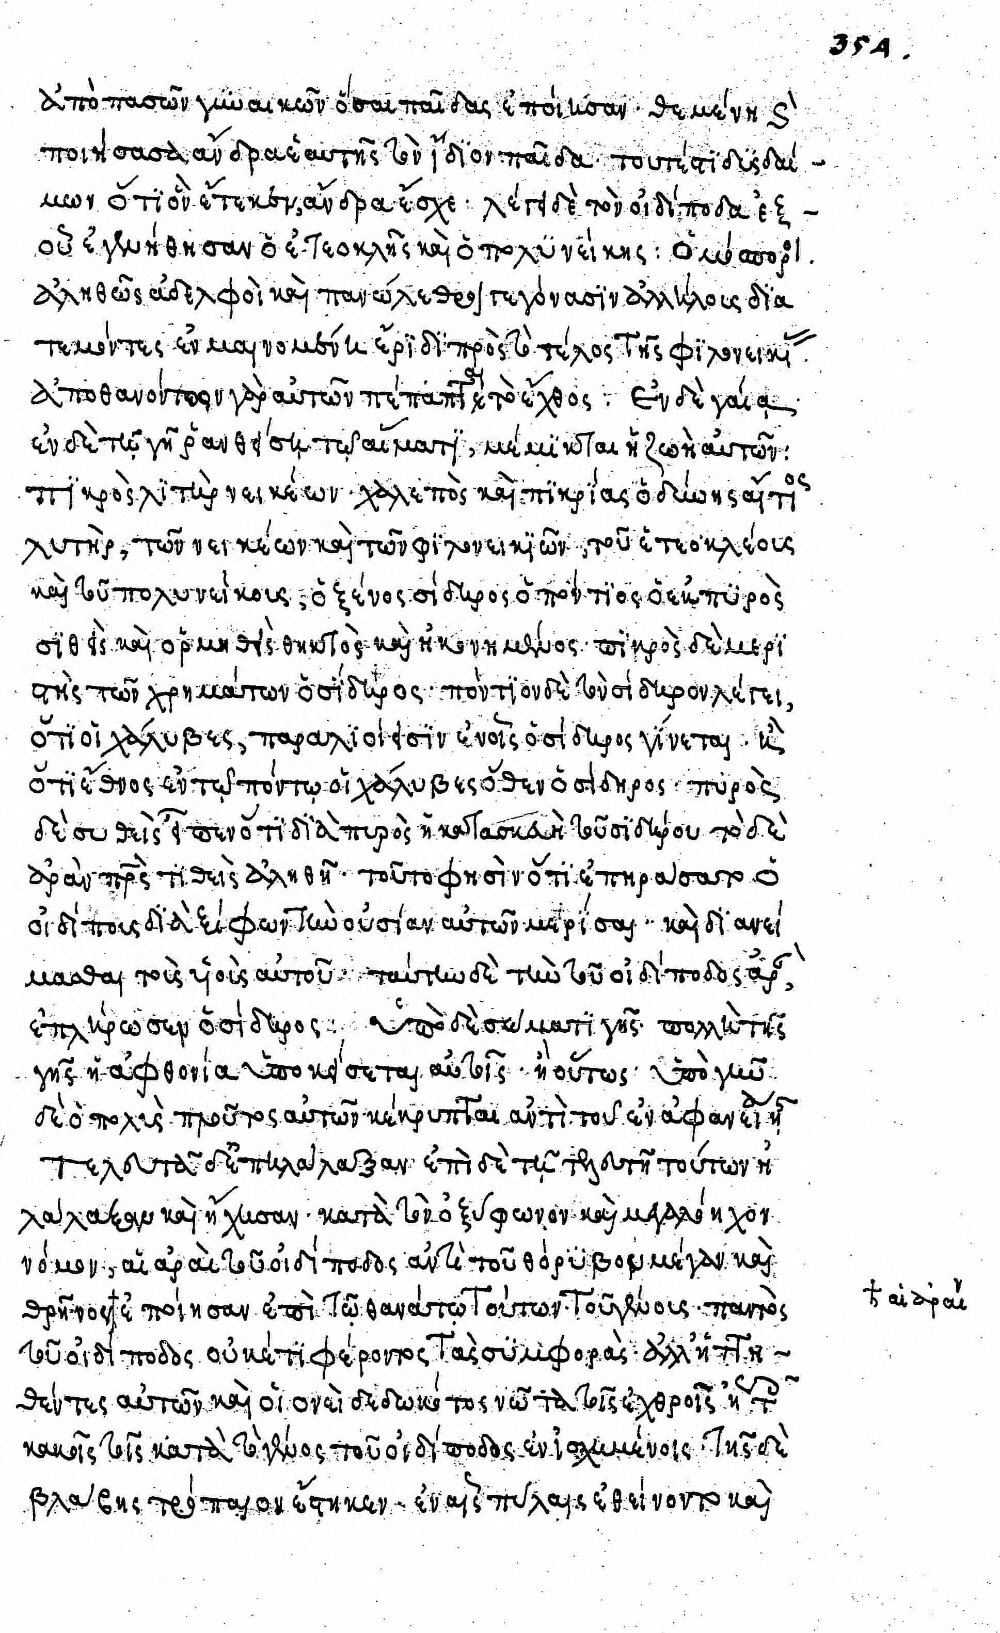 35A.
ἀπὸ πασῶν γυναικῶν ὅσαι παῖδας ἐποίησαν· θεμένη δὲ
ποιήσασα ἄνδρα ἑαυτῆς τὸν ἴδιον παῖδα· τουτέστι δυσδαί-
μων ὅτι ὃν ἔτεκεν, ἄνδρα ἔσχε· λέγει δὲ τὸν οἰδίποδα ἐξ-
οὗ ἐγεννήθησαν ὁ ἐτεοκλῆς καὶ ὁ πολυνείκης: ὁμόσποροι.
ἀληθῶς ἀδελφοὶ καὶ πανώλεθροι γεγόνασιν ἀλλήλοις δια
τεμόντες ἐν μαινομένῃ ἔριδι πρὸς τὸ τέλος τῆς φιλονεικίας.
ἀποθανόντων γὰρ αὐτῶν πέπαυται τὸ ἔχθος: Ἐν δὲ γαίᾳ
ἐν δὲ τῇ γῇ ῥανθείσῃ τῷ αἵματι, μέμικται ἡ ζωὴ αὐτῶν:
πικρὸς λυτὴρ νεικέων· χαλεπὸς καὶ πικρίας ὁ αἴτιος
λυτὴρ, τῶν νεικέων καὶ τῶν φιλονεικιῶν, τοῦ ἐτεοκλέους
καὶ τοῦ πολυνείκους, ὁ ξένος σίδηρος ὁ πόντιος ὁ ἐκ πυρὸς
συθεὶς καὶ ὁρμηθεὶς θηκτὸς καὶ ἠκονημένος· πικρὸς δὲ μερι
στὴς τῶν χρημάτων ὁ σίδηρος· πόντιον δὲ τὸν σίδηρον λέγει,
ὅτι οἱ χάλυβες, παράλιοί εἰσιν ἐν οἷς ὁ σίδηρος γίνεται· καὶ
ὅτι ἔθνος ἐν τῷ πόντῳ οἱ χάλυβες ὅθεν ὁ σίδηρος· πυρὸς
δὲ συθεὶς εἶπεν ὅτι διὰ πυρὸς ἡ κατασκευὴ τοῦ σιδήρου τὸ δὲ
ἀρὰν πατρὸς τιθεὶς ἀληθῆ· τοῦτο φησὶν ὅτι ἐπηράσατο ὁ
οἰδίπους διὰ ξίφων τὴν οὐσίαν αὐτῶν μερίσαι· καὶ διανεί
μασθαι τοῖς υἱοῖς αὐτοῦ· ταύτην δὲ τὴν τοῦ οἰδίποδος ἀρὰν,
ἐπλήρωσεν ὁ σίδηρος: Ὑπὸ δὲ σώματι γῆς πολλὴ τῆς
γῆς ἡ ἀφθονία ὑποκείσεται αὐτοῖς· ἢ οὕτως· ὑπὸ γῆν
δὲ ὁ πολὺς πλοῦτος αὐτῶν κέκρυπται ἀντὶ τοῦ ἐν ἀφανεῖ
Τελευτᾷ δ' ἐπηλάλαξαν· ἐπὶ δὲ τῇ τελευτῇ τούτων ἠ
λάλαξαν καὶ ἤχησαν· κατὰ τὸν ὀξύφωνον καὶ μεγαλόηχον
νόμον, αἱ ἀραὶ τοῦ οἰδίποδος ἀντὶ τοῦ θόρυβον μέγαν καὶ
θρῆνος † ἐποίησαν ἐπὶ τῷ θανάτῳ τούτων· τοῦ γένους παντὸς
† αἱ ἀραὶ
τοῦ οἰδίποδος οὐκέτι φέροντος τὰς συμφορὰς ἀλλ' ἡττη-
θέντες αὐτῶν καὶ οἱονεὶ δεδωκότος νῶτα τοῖς ἐχθροῖς
κακοῖς τοῖς κατὰ τὸ γένος τοῦ οἰδίποδος ἐνισχημένοις· τῆς δὲ
βλάβης τρόπαιον ἔστηκεν· ἐν αἷς πύλαις ἐθείνοντο καὶ